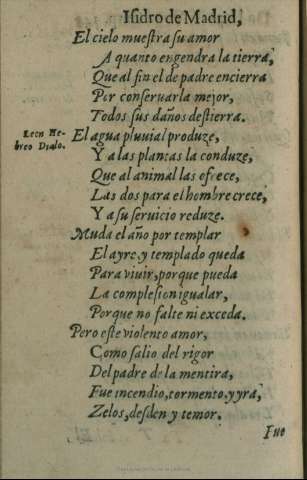 Isidro de Madrid,
El cielo muestra su amor
A quanto engendra la tierra,
Que al fin el de padre encierra
Por conseruarla mejor,
Todos sus daños destierra.
Leon He-
breo Dialo.
El agua pluuial produze,
Y a las plantas la conduze,
Que al animal las ofrece,
Las dos para el hombre crece,
Y a su seruicio reduze.
Muda el año por templar
El ayre, y templado queda
Para viuir, porque pueda
La complesion igualar,
Porque no falte ni exceda.
Pero este violento amor,
Como salio del rigor
Del padre de la mentira,
Fue incendio, tormento, y yra,
Zelos, desden y temor.
Fue